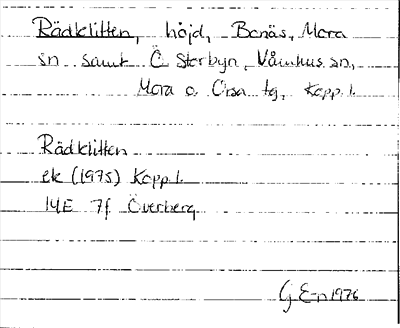 Rädklitten, höjd, Bonäs, Mora
sn samt Ö. Storbyn, Våmhus sn,
Mora o. Orsa tg, Kopp. l.
Rädklitten
ek (1975) Kopp. l.
14E 7f Överberg
G E-n 1976